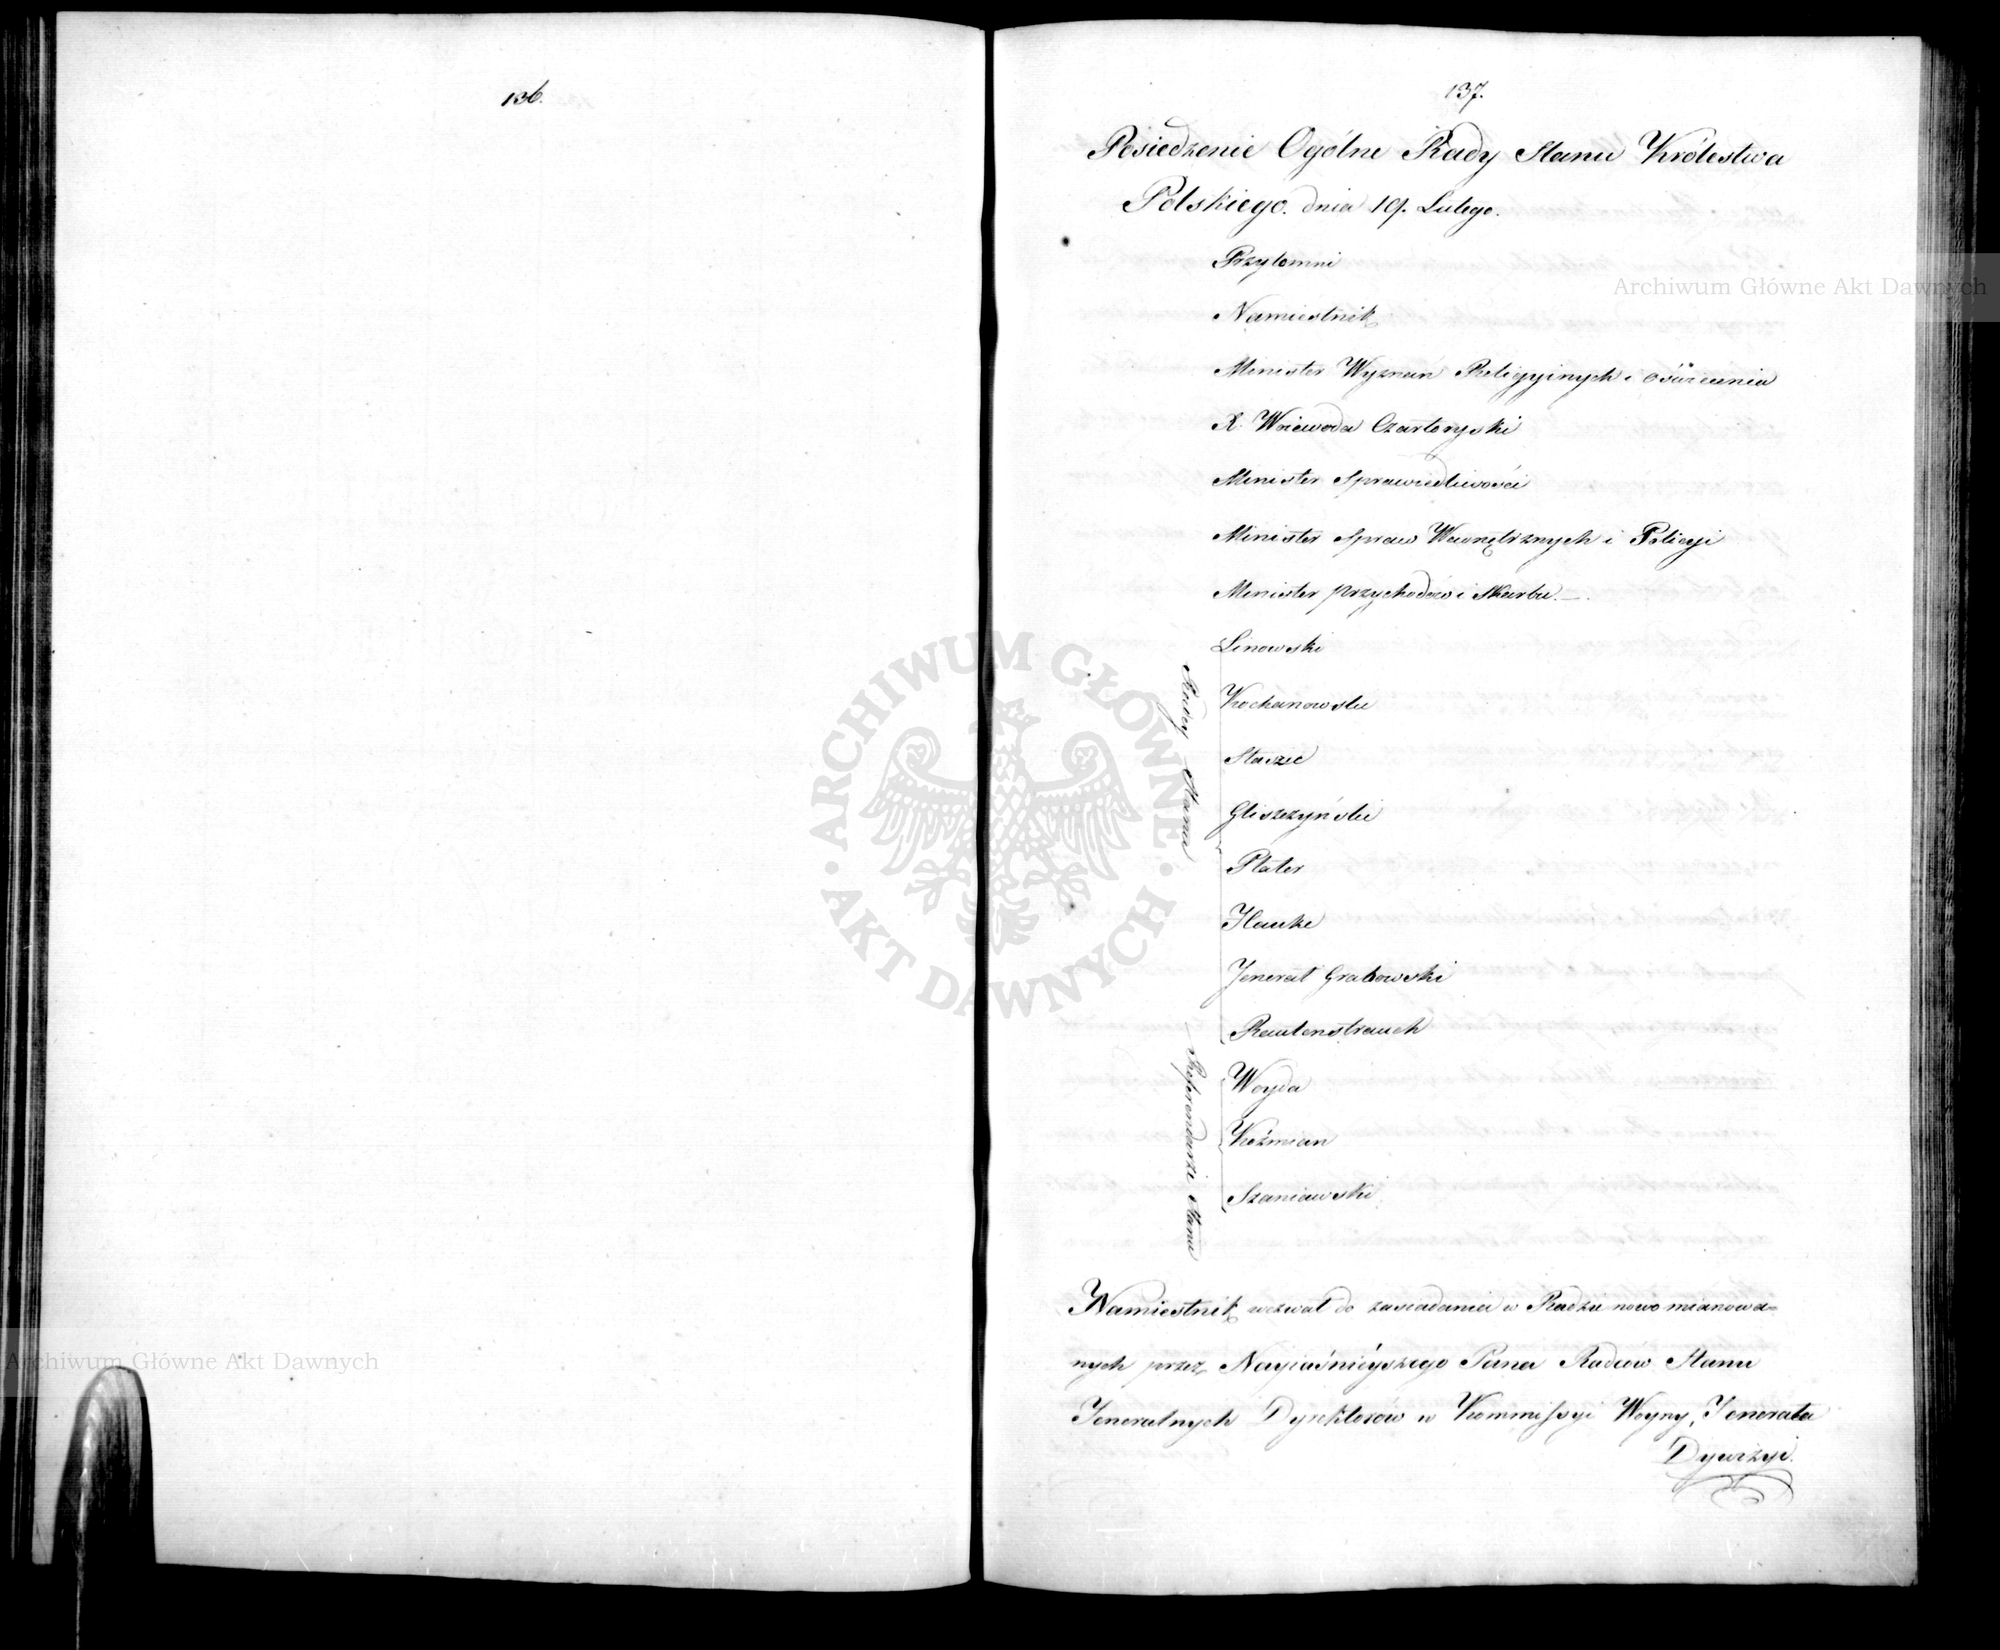 136.
137.
Posiedzenie Ogólne Rady Stanu Królestwa
Polskiego. dnia 19. Lutego.
Przytomni
Namiestnik
Minister Wyznań Religyinych i Oświecenia
X. Woiewoda Czartoryski
Minister Sprawiedliwości
Minister Spraw Wewnętrznych i Policyi
Minister Przychodów i Skarbu.
Radcy Stanu
Linowski
Kochanowski
Staszic
Gliszczyński
Plater
Hauke
Jenerał Grabowski
Rautenstrauch
Referendarze Stanu
Woyda
Koźmian
Szaniawski
Namiestnik wezwał do zasiadania w Radzie nowo mianowa=
nych przez Nayiaśnieyszego Pana Radców Stanu
Jeneralnych Dyrektorów w Kommissyi Woyny, Jenerała
Dywizyi.
Archiwum Główne Akt Dawnych
ARCHIWUM GŁÓWNE AKT DAWNYCH
Archiwum Główne Akt Dawnych